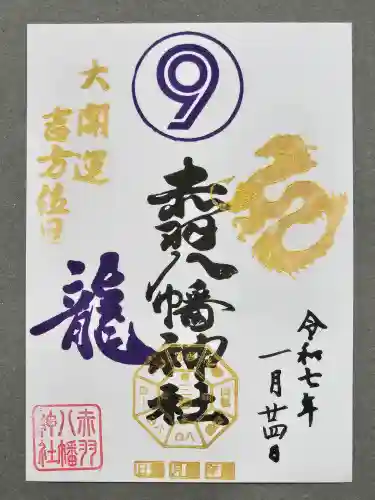 ⑨
大開運
吉方位日
赤羽八幡神社
龍
令和七年
一月廿四日
赤羽
八幡
神社